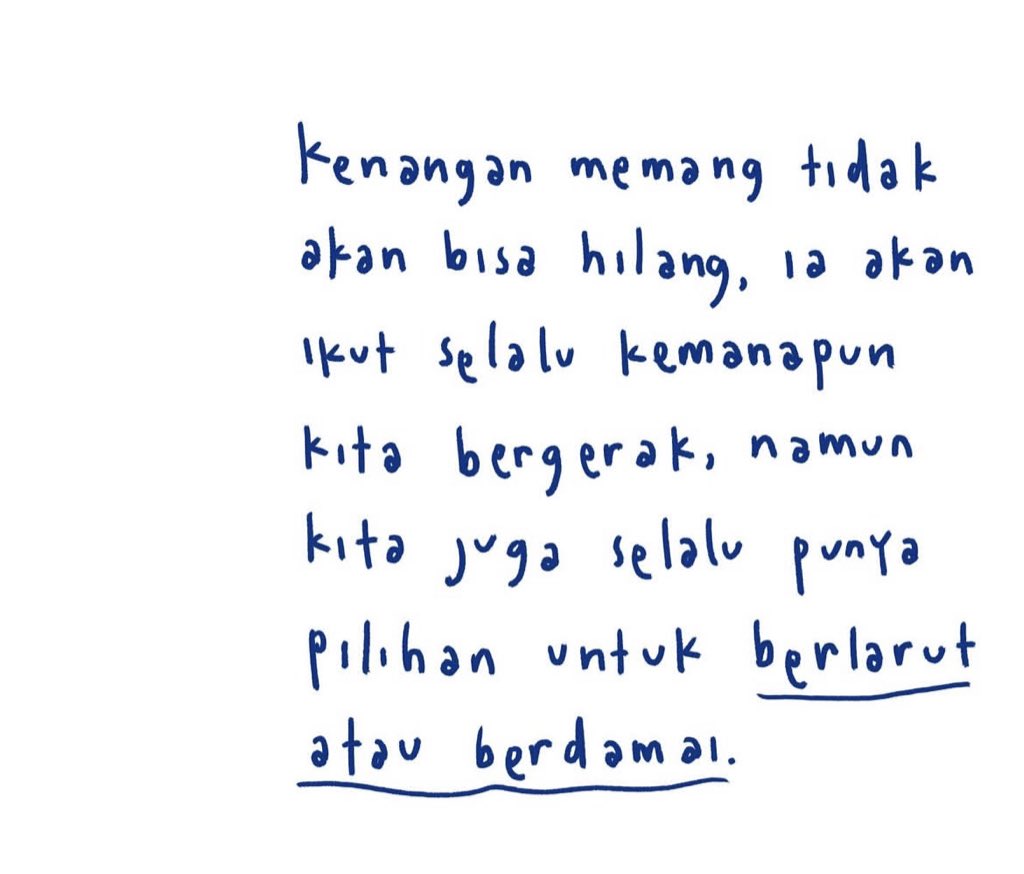 kenangan memang tidak
akan bisa hilang, ia akan
ikut selalu kemanapun
kita bergerak, namun
kita juga selalu punya
pilihan untuk berlarut
atau berdamai.